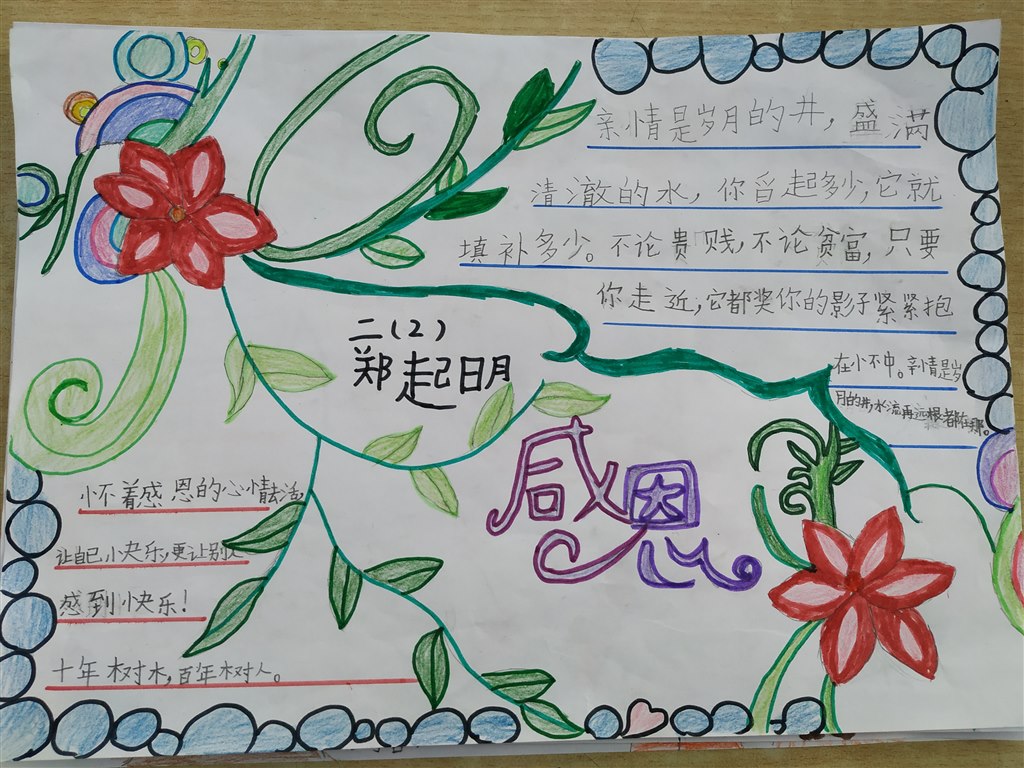 亲情是岁月的井，盛满
清澈的水，你舀起多少，它就
填补多少。不论贵贱，不论贫富，只要
你走近，它都奖你的影子紧紧抱
在小不中。亲情是岁
月的井，水流再远根都在那。
二（2）
郑起明
感恩
怀着感恩的心情去活，
让自己快乐，更让别人
感到快乐！
十年树木，百年树人。